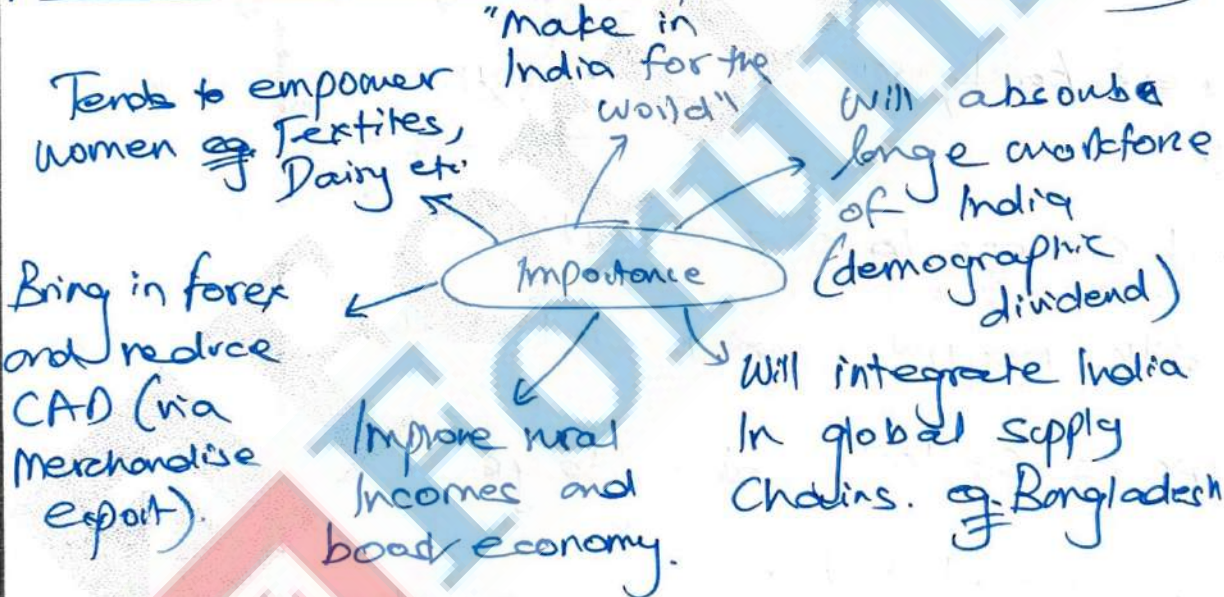 "Make in
India for the
world"
Tends to empower
women eg Textiles,
Dairy etc.
Will absorbe
large workforce
of India
(demographic
dividend)
Importance
Bring in forex
and reduce
CAD (via
Merchandise
export).
Improve rural
Incomes and
economy.
Will integrate India
In global supply
Chains. eg. Bangladesh
Forum